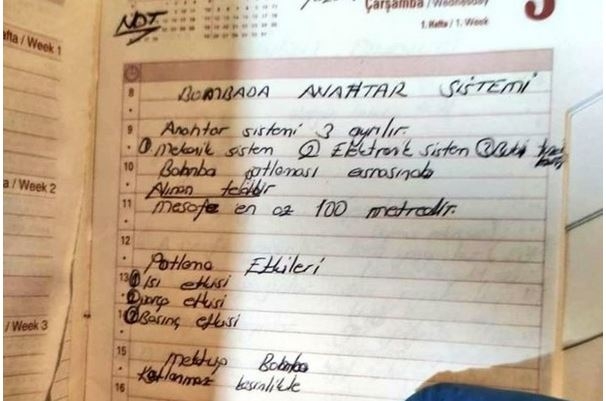 NOT
Çarşamba / Wednesday
1. Hafta / 1. Week
afta / Week 1
a / Week 2
/ Week 3
8 BOMBADA ANAHTAR SİSTEMİ
9 Anahtar sistemi 3 ayrılır.
① Mekanik sistem ② Elektronik sistem ③
10 Bomba patlaması esnasında
Alınan tedbir
11 Mesafe en az 100 metredir.
12
Patlama Etkileri
13 ① Isı etkisi
② parça etkisi
14 ③ Basınç etkisi
15 Mektup Bomba
16 Katlanmaz kesinlikle